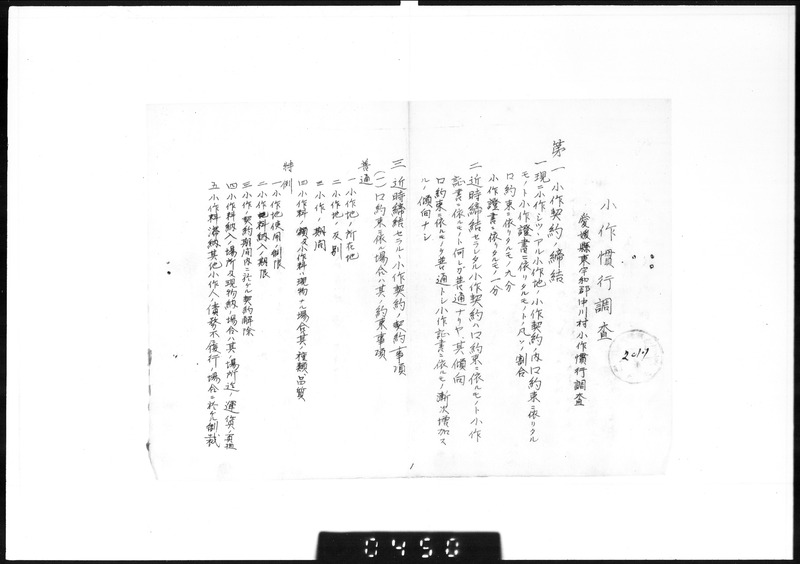 小作慣行調査
愛媛縣東宇和郡中川村小作慣行調査
2017
第一 小作契約ノ締結
一 現ニ小作シツヽアル小作地ノ小作契約ノ内口約束ニ依リタル
モノト小作證書ニ依リタルモノトノ凡ソノ割合
口約束ニ依リタルモノ九分
小作證書ニ依リタルモノ一分
二 近時締結セラレタル小作契約ハ口約束ニ依ルモノト小作
証書ニ依ルモノト何レガ普通ナリヤ其傾向
口約束ニ依ルモノヲ普通トシ小作証書ニ依ルモノ漸次増加ス
ルノ傾向ナシ
三 近時締結セラルヽ小作契約ノ契約事項
(一) 口約束ニ依ル場合ハ其ノ約束事項
普通
一 小作地ノ所在地
二 小作地ノ反別
三 小作ノ期間
四 小作料ノ額及小作料ハ現物ナル場合其ノ種類品質
特別
一 小作地使用ノ制限
二 小作料納入ノ期限
三 小作ノ契約期間内ニ於ケル契約解除
四 小作料納入ノ場所及現物納ノ場合ハ其ノ場所迄ノ運賃ノ負担
五 小作料滞納其他小作人ノ債務不履行ノ場合ニ於ケル制裁
1
0450